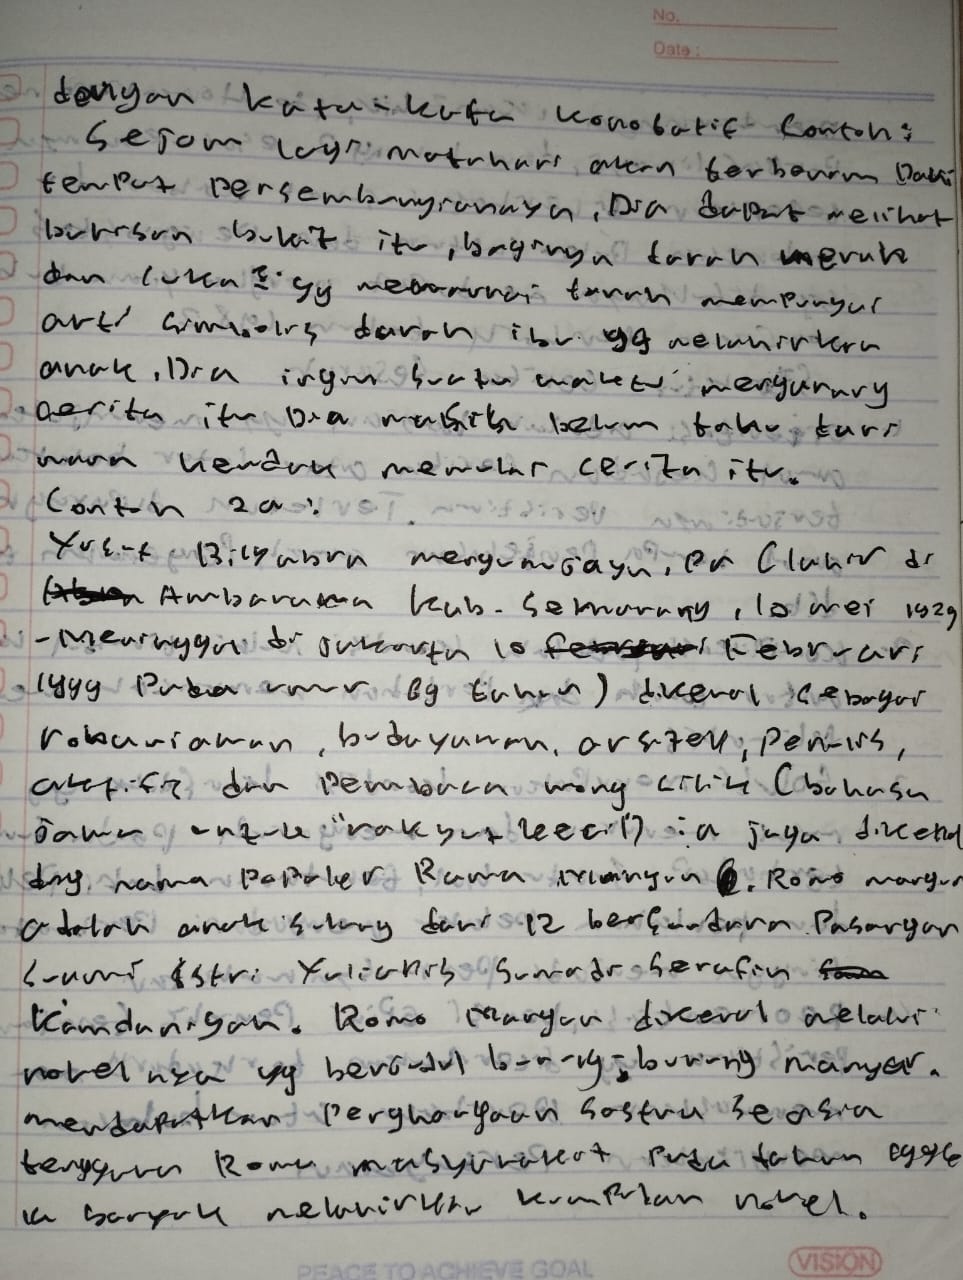 No.
Date :
dengan kata-kata konotatif. Contoh:
Sejam lagi matahari akan terbenam Dari
tempat persembunyiannya, Dia dapat melihat
barisan bukit itu, baginya tanah merah
dan luka yg mewarnai tanah mempunyai
arti simbolis darah ibu yg melahirkan
anak. Dia ingin suatu waktu mengarang
cerita itu Dia masih belum tahu dari
mana hendak memulai cerita itu.
Contoh 2a:
Yusuf Bilyarta mangunwijaya, Pr (lahir di
Ambarawa Kab. Semarang, 10 mei 1929
- Meninggal di Jakarta 10 Februari
1999 Pada umur 69 tahun) dikenal sebagai
rohaniawan, budayawan, arsitek, Penulis,
aktifis dan Pembela wong cilik (bahasa
Jawa untuk "rakyat kecil") ia juga dikenal
dng nama Populer Rama mangun. Romo mangun
adalah anak sulung dari 12 bersaudara Pasangan
suami istri Yulianus Sumadi Serafin
Kamdaniyah. Romo mangun dikenal melalui
novelnya yg berjudul burung-burung manyar.
mendapatkan Penghargaan sastra se asia
tenggara Ramon masyarakat Pada tahun 1996
ia banyak melahirkan kumpulan novel.
PEACE TO ACHIEVE GOAL
VISION